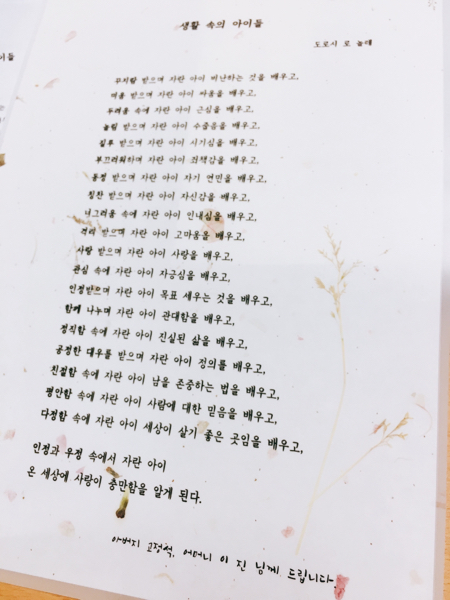 생활 속의 아이들
도로시 로 놀테
꾸지람 받으며 자란 아이 비난하는 것을 배우고,
미움 받으며 자란 아이 싸움을 배우고,
두려움 속에 자란 아이 근심을 배우고,
놀림 받으며 자란 아이 수줍음을 배우고,
질투 받으며 자란 아이 시기심을 배우고,
부끄러워하며 자란 아이 죄책감을 배우고,
동정 받으며 자란 아이 자기 연민을 배우고,
칭찬 받으며 자란 아이 자신감을 배우고,
너그러움 속에 자란 아이 인내심을 배우고,
격려 받으며 자란 아이 고마움을 배우고,
사랑 받으며 자란 아이 사랑을 배우고,
관심 속에 자란 아이 자긍심을 배우고,
인정받으며 자란 아이 목표 세우는 것을 배우고,
함께 나누며 자란 아이 관대함을 배우고,
정직함 속에 자란 아이 진실된 삶을 배우고,
공정한 대우를 받으며 자란 아이 정의를 배우고,
친절함 속에 자란 아이 남을 존중하는 법을 배우고,
평안함 속에 자란 아이 사람에 대한 믿음을 배우고,
다정함 속에 자란 아이 세상이 살기 좋은 곳임을 배우고,
인정과 우정 속에서 자란 아이
온 세상에 사랑이 충만함을 알게 된다.
아버지 고정석, 어머니 이 진 님께 드립니다.